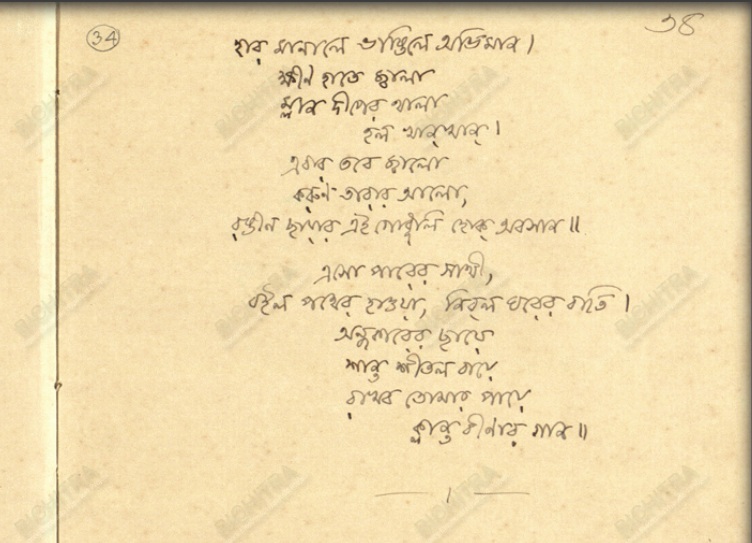 34
৩৪
হার মানালে ভাঙিলে অভিমান।
ক্ষীণ হাতে জ্বালা
ম্লান দীপের থালা
হল খান্‌ খান্‌।
এবার তবে জ্বালো
করুণ তারার আলো,
রঙীন ছায়ার এই গোধূলি হোক্‌ অবসান॥
এসো পারের সাথী,
বইল পথের হাওয়া, নিবল ঘরের বাতি।
অন্ধকারের ছায়ে
শান্ত শীতল বায়ে
রাখব তোমার পায়ে
ক্লান্ত বীণার গান॥
BICHITRA